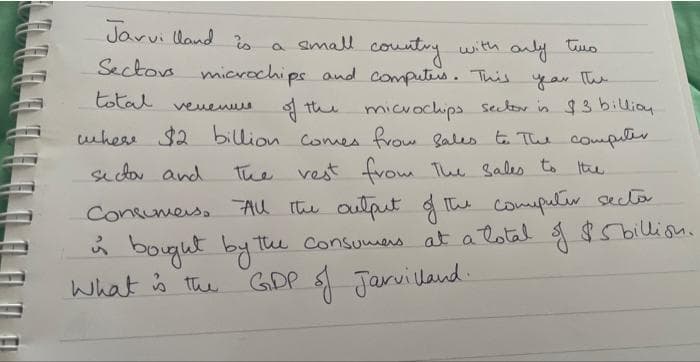 Jarvilland is a small country with only two
Sectors microchips and computers. This year The
total revenue of the microchips sector is $3 billion
where $2 billion comes from sales to The computer
sector and the rest from The sales to the
Consumers. All the output of the computer sector
is bought by the consumers at a total of $5 billion.
What is the GDP of Jarvilland.